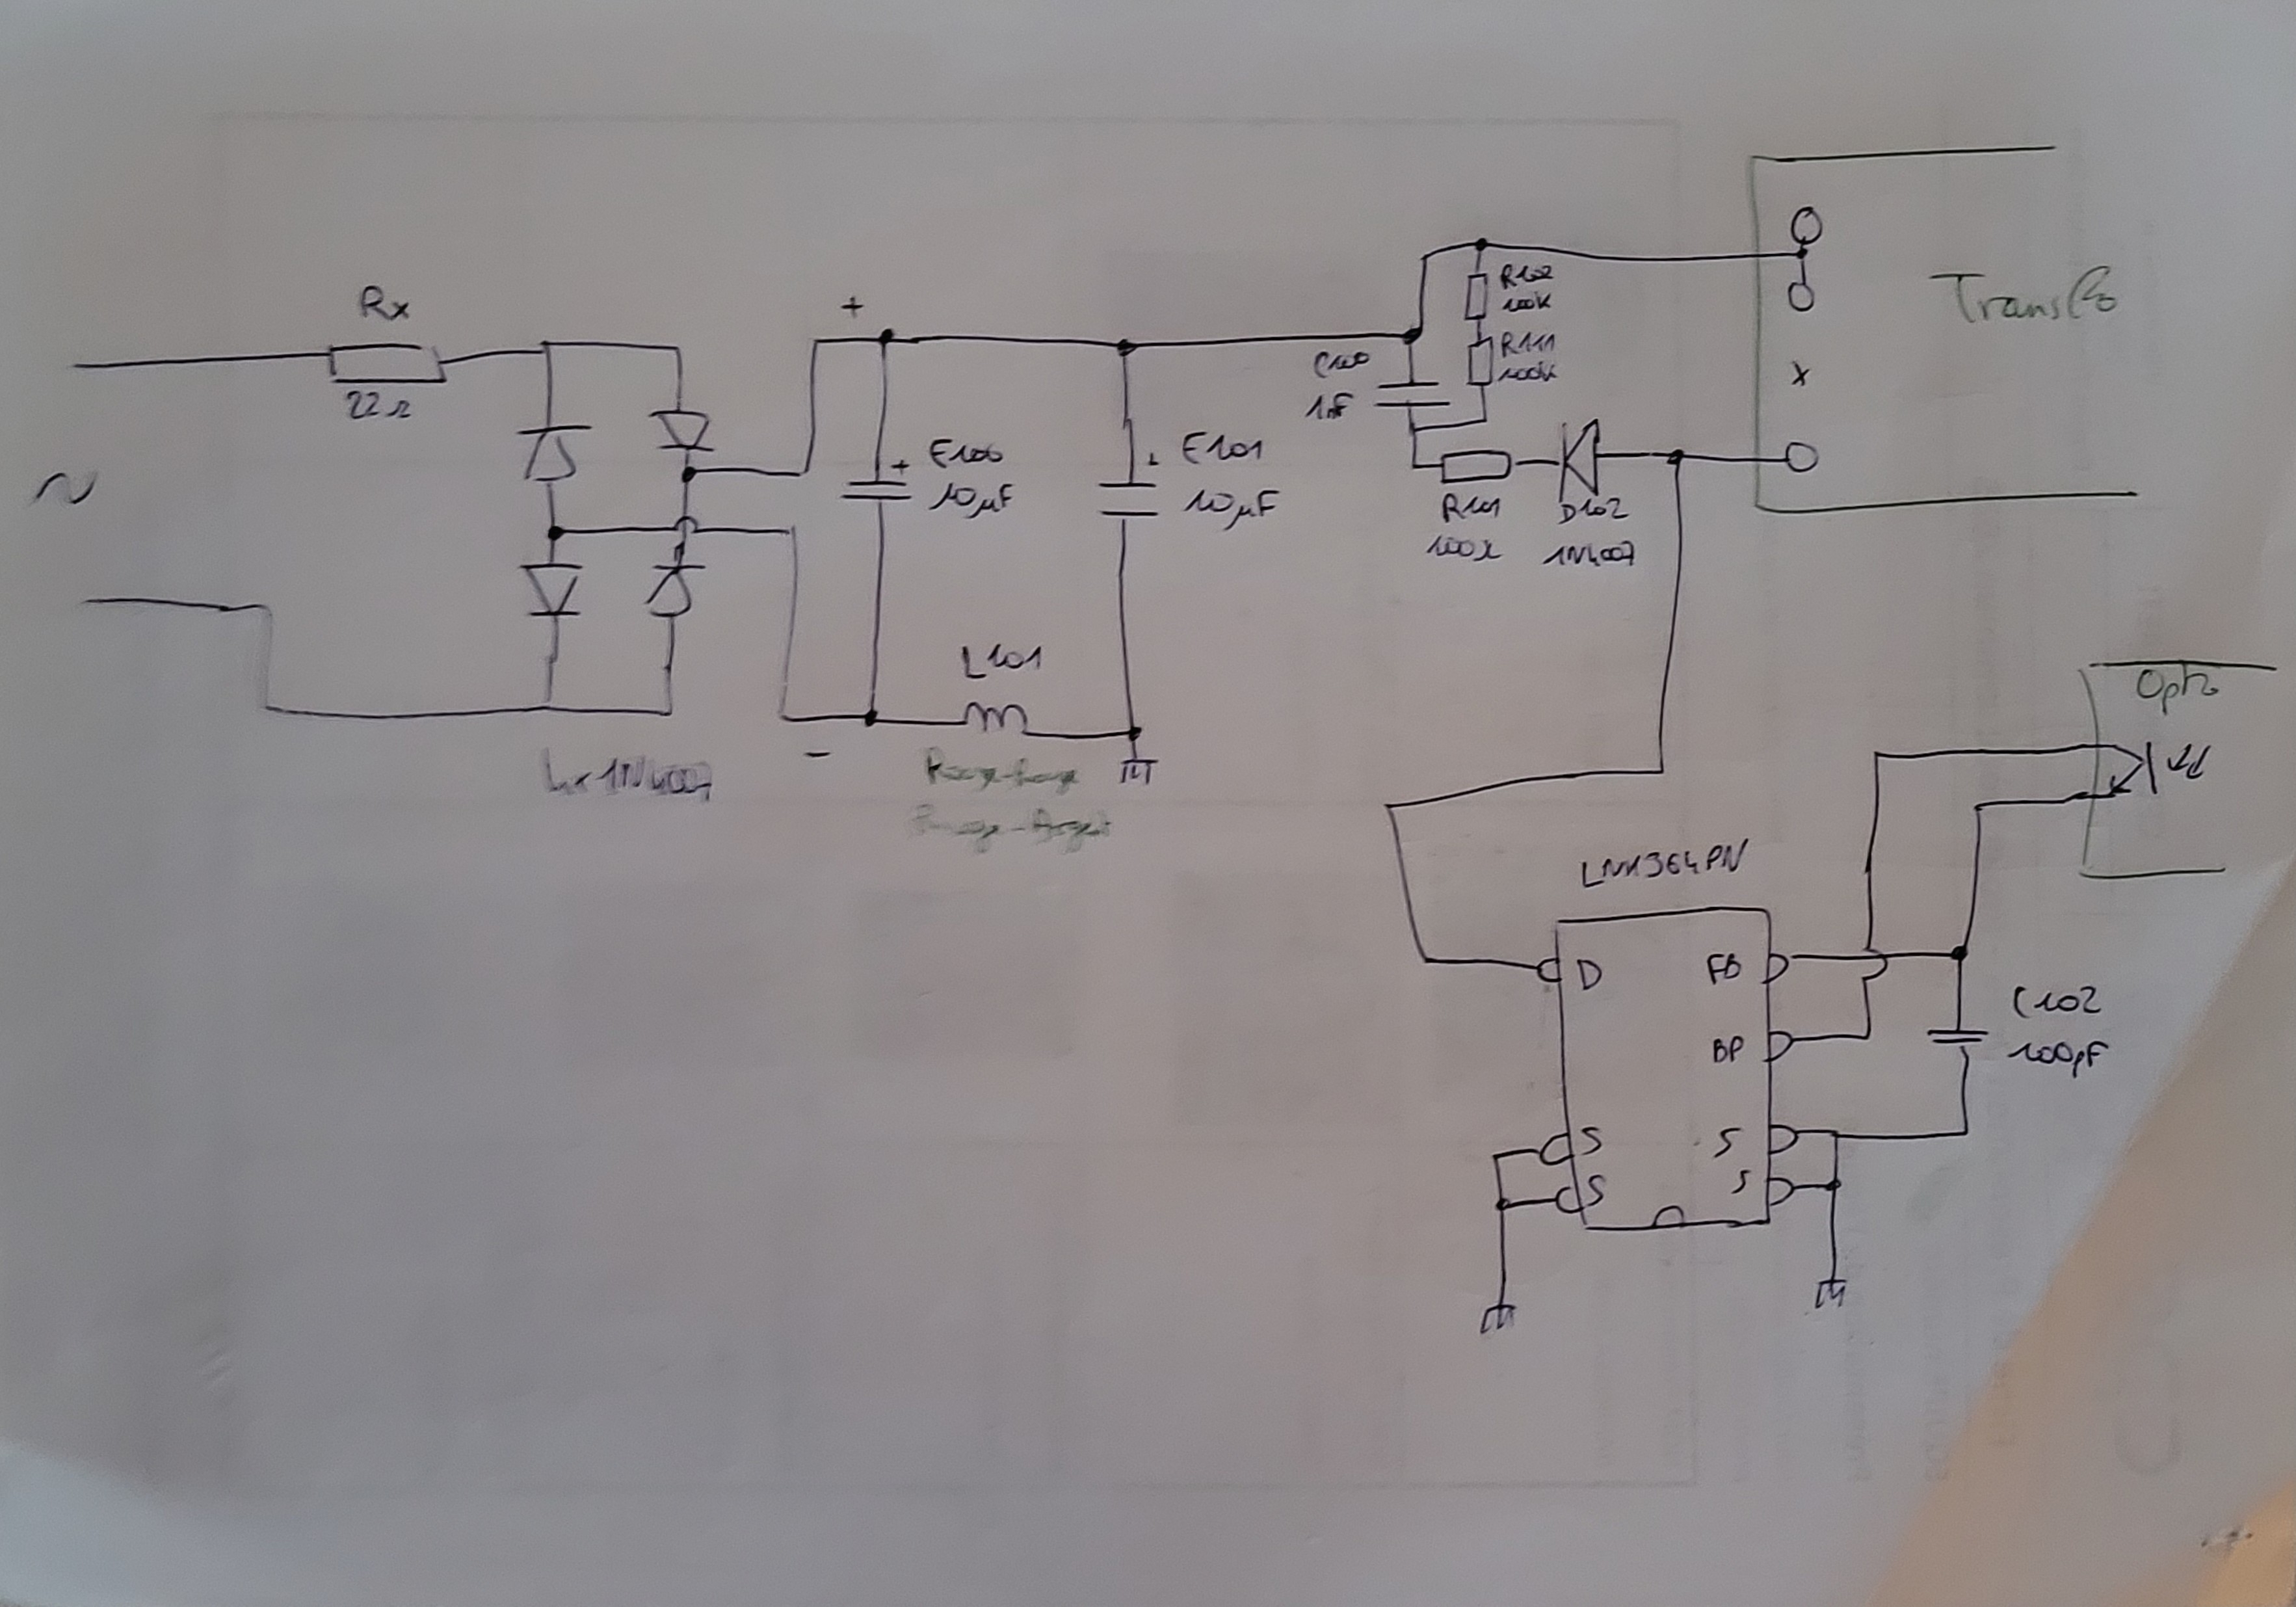 Rx
22Ω
~
4x1N4007
+
-
+ E100
10µF
+ E101
10µF
L101
C100
1nF
R102
100k
R111
100k
R101
100Ω
D102
1N4007
Transfo
x
Opto
LNK364PN
D
S
S
FB
BP
S
S
C102
100pF